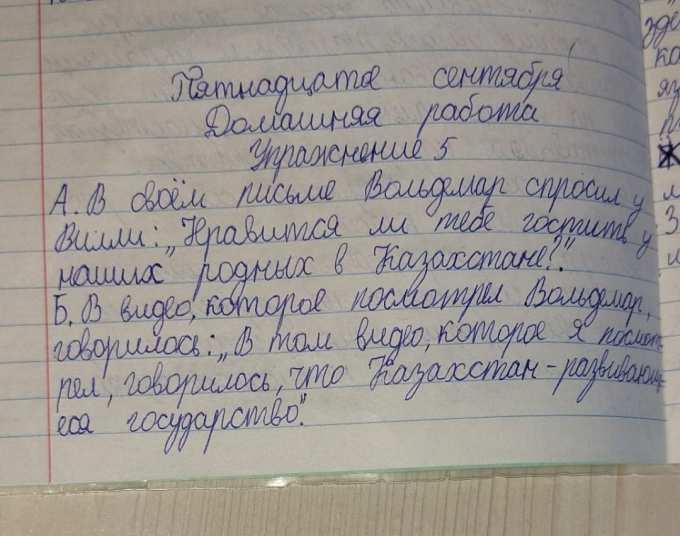 Пятнадцатое сентября
Домашняя работа
Упражнение 5
А. В своём письме Вольдемар спросил у
Вилли: „Нравится ли тебе гостить у
наших родных в Казахстане?".
Б. В видео, которое посмотрел Вольдемар,
говорилось: „В том видео, которое я посмот-
рел, говорилось, что Казахстан - развивающ-
ееся государство".
зде
ка
яз